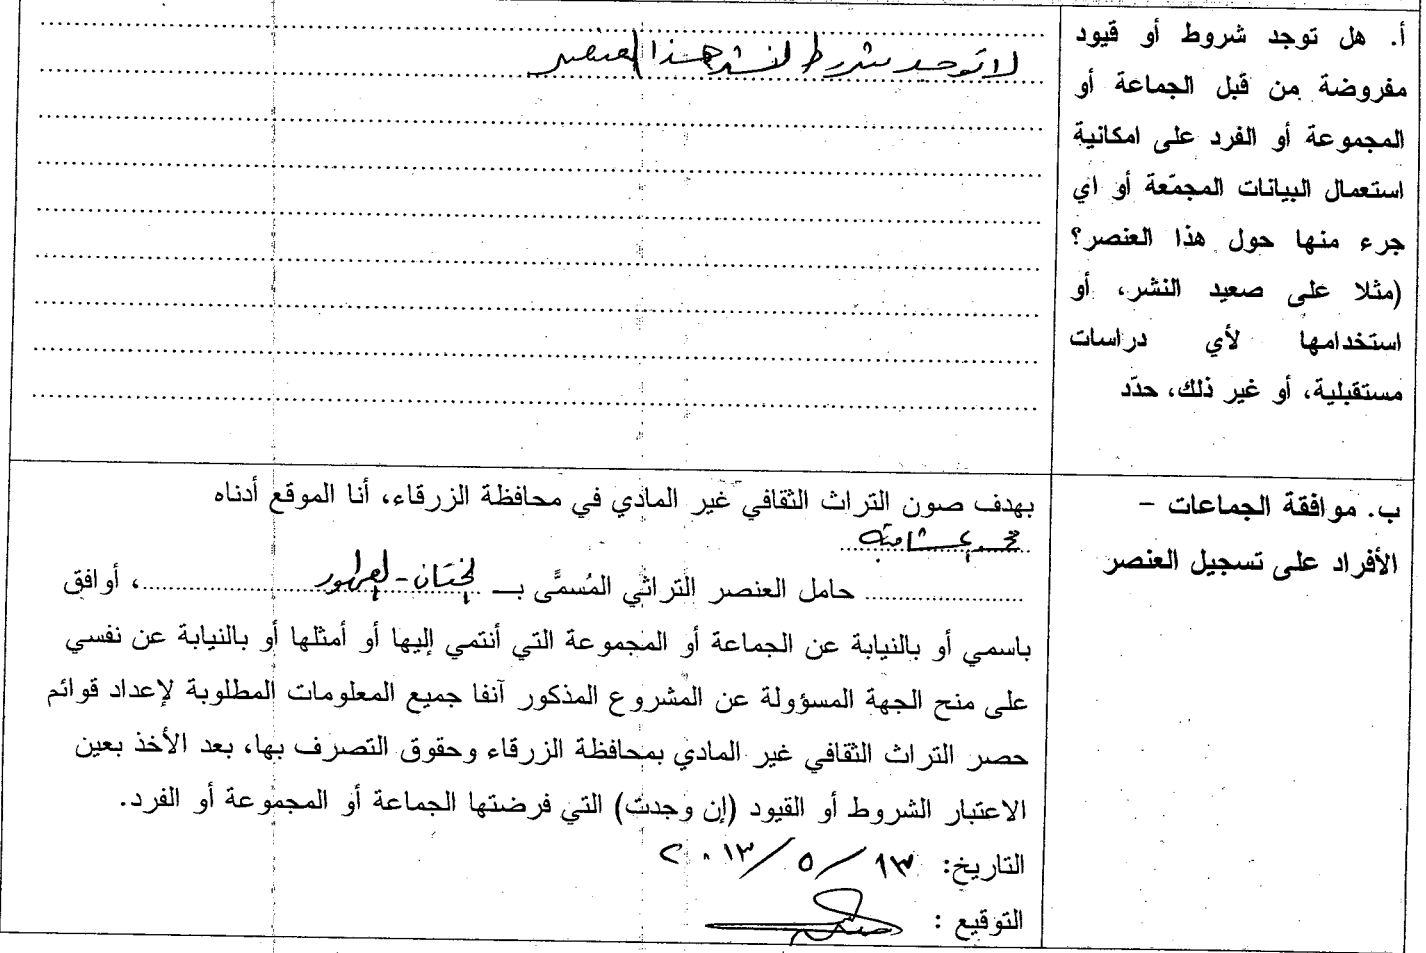 أ. هل توجد شروط أو قيود
مفروضة من قبل الجماعة أو
المجموعة أو الفرد على امكانية
استعمال البيانات المجمّعة أو اي
جرء منها حول هذا العنصر؟
(مثلا على صعيد النشر، أو
استخدامها لأي دراسات
مستقبلية، أو غير ذلك، حدّد
لا توجد شروط لنشر هذا العنصر
ب. موافقة الجماعات –
الأفراد على تسجيل العنصر
بهدف صون التراث الثقافي غير المادي في محافظة الزرقاء، أنا الموقع أدناه
محمد
حامل العنصر التراثي المُسمًّى بـ الختان - الطهور، أوافق
باسمي أو بالنيابة عن الجماعة أو المجموعة التي أنتمي إليها أو أمثلها أو بالنيابة عن نفسي
على منح الجهة المسؤولة عن المشروع المذكور آنفا جميع المعلومات المطلوبة لإعداد قوائم
حصر التراث الثقافي غير المادي بمحافظة الزرقاء وحقوق التصرف بها، بعد الأخذ بعين
الاعتبار الشروط أو القيود (إن وجدت) التي فرضتها الجماعة أو المجموعة أو الفرد.
التاريخ: ١٣ / ٥ / ٢٠١٣
التوقيع :